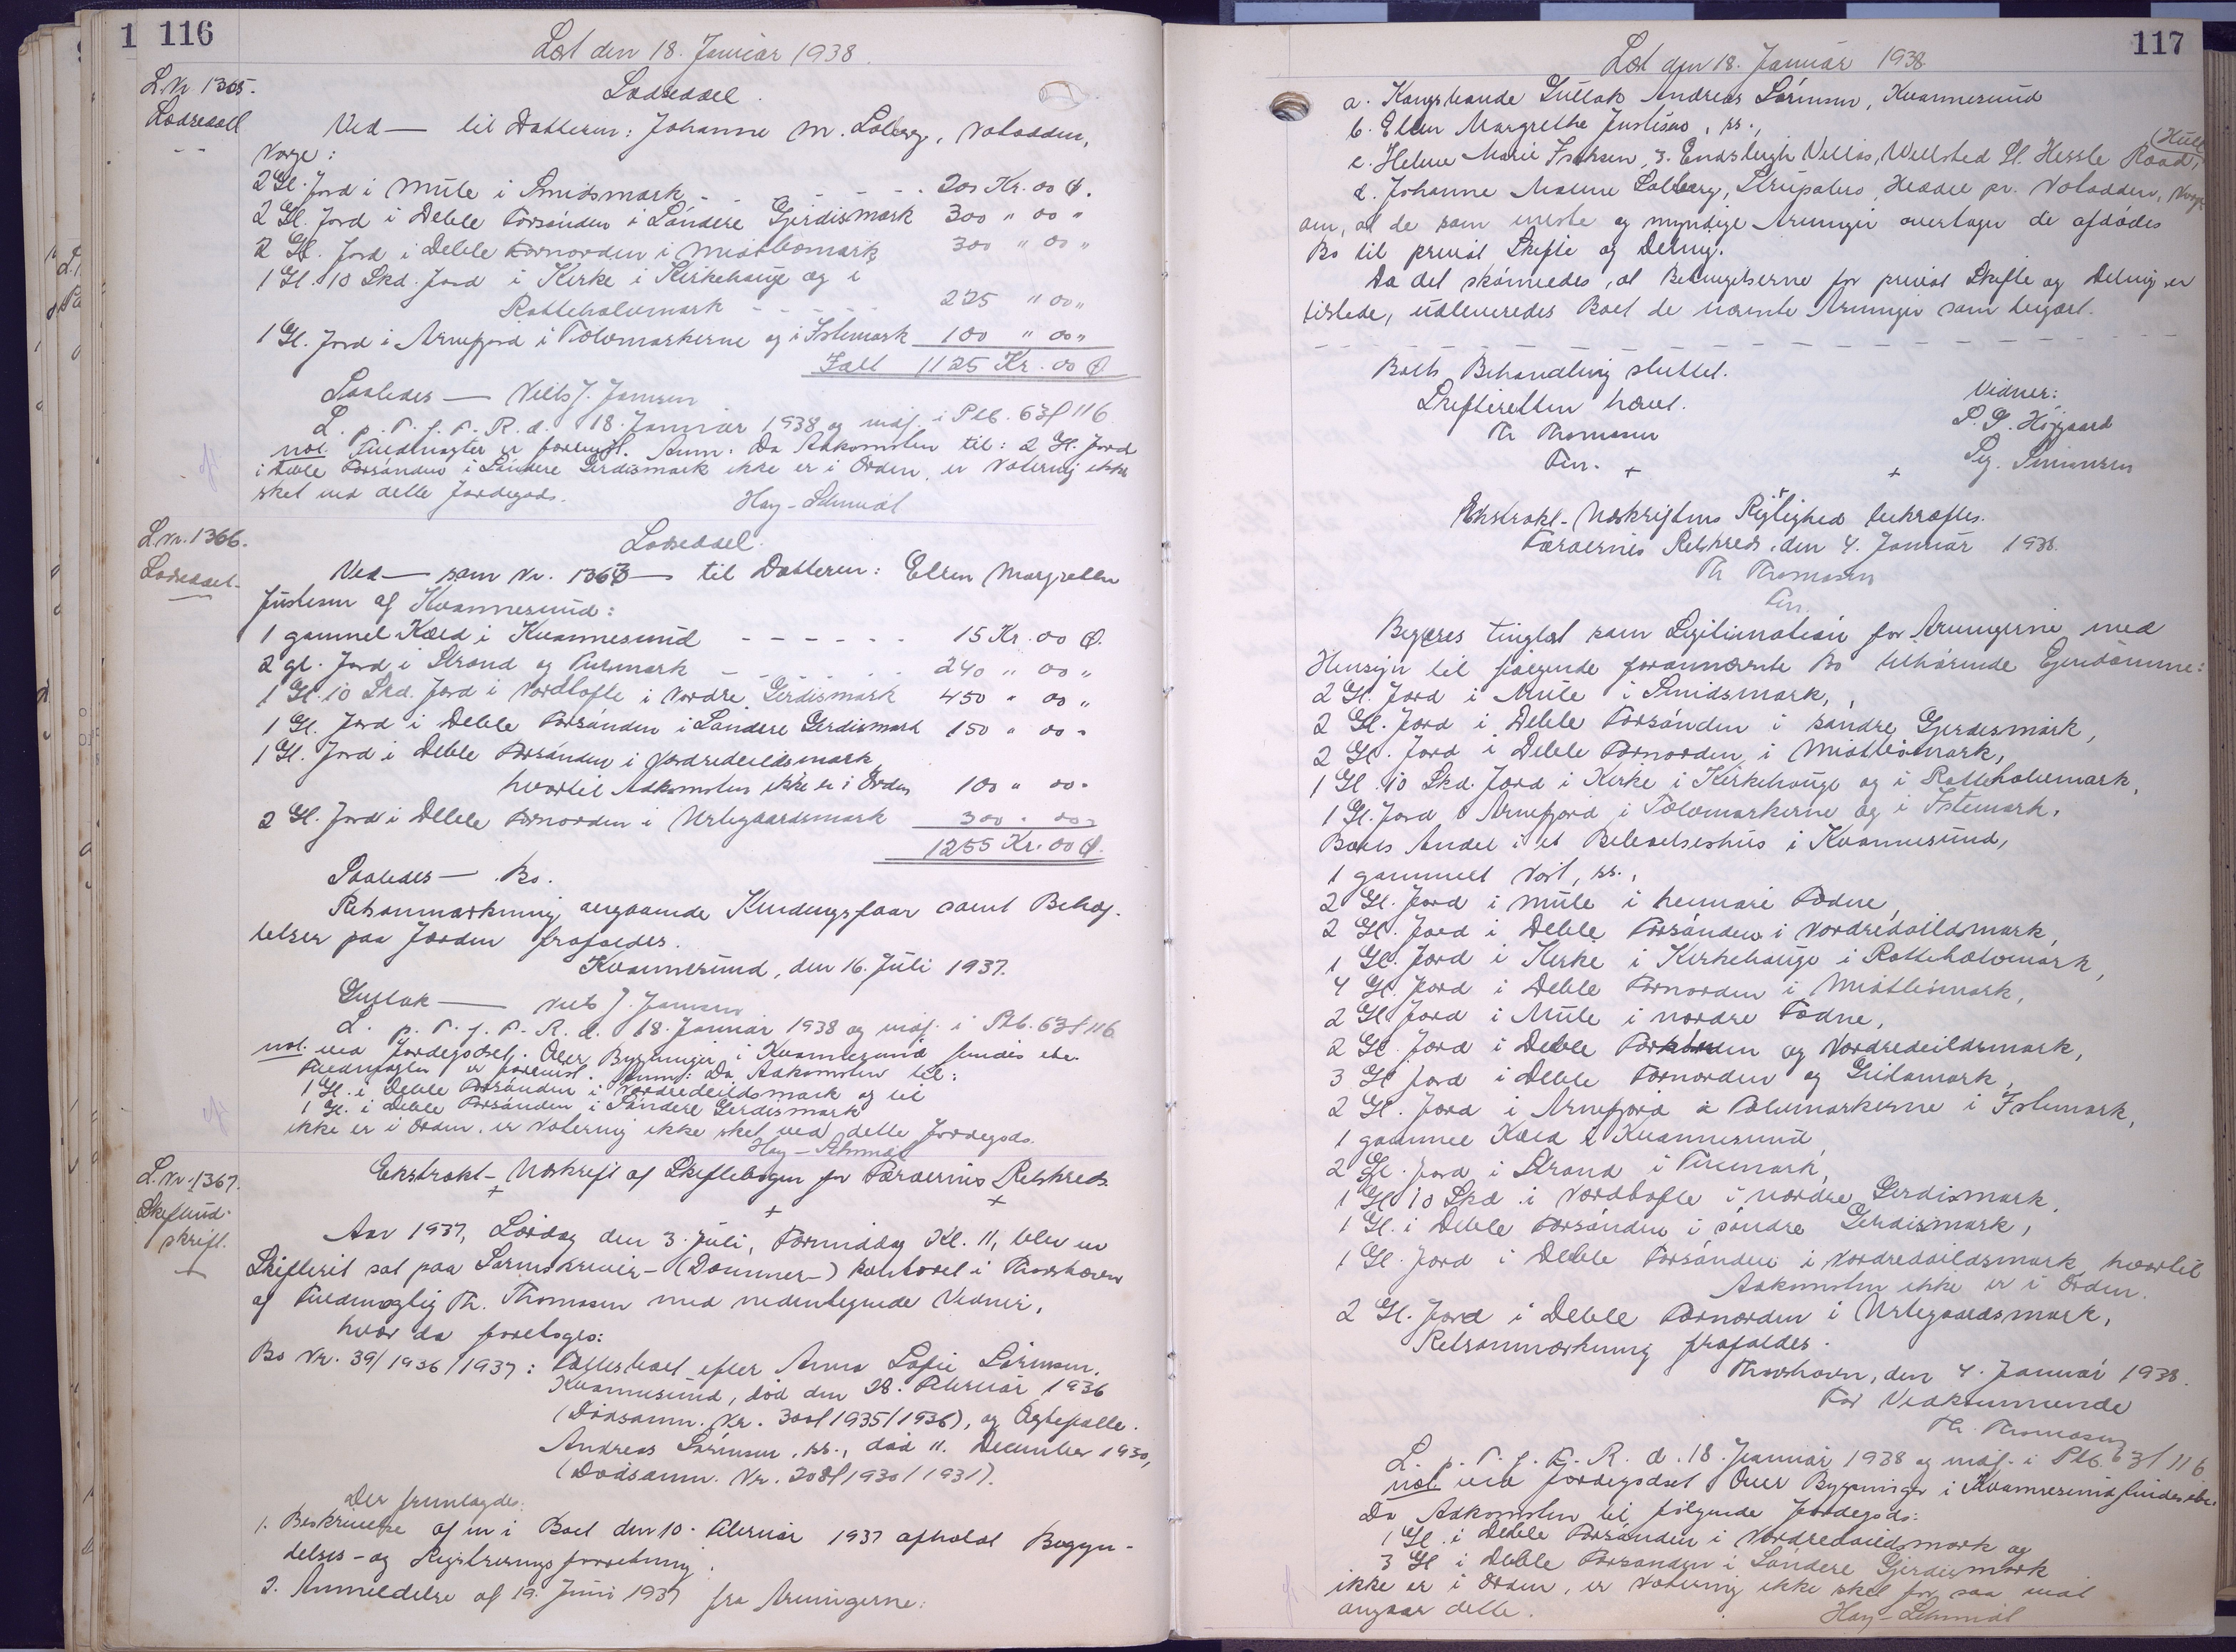 1 116
Læst den 18. Januar 1938.
L.Nr. 1365.
Lodseddel
Lodseddel.
Ved — til Datteren: Johanne M. Solberg, Notodden,
Norge:
2 Gl. Jord i Mule i Smidsmark - - - - 200 Kr. 00 Ø.
2 Gl. Jord i Deble Forsónden i Søndere Gjerdismark 300 " 00 "
2 Gl. Jord i Deble Fornorden i Midtbømark 300 " 00 "
1 Gl. 10 Skd. Jord i Kirke i Kirkehauge og i
Rottehalvmark - - - - 225 " 00 "
1 Gl. Jord i Arnefjord i Tólvmarkerne og i Istemark 100 " 00 "
Ialt 1125 Kr. 00 Ø
Saaledes — Niels J. Jensen
L. p. T. f. F. R. d. 18. Januar 1938 og indf. i Ptb. 63 f 116
not. Fuldmagter er forevist. Anm: Da Adkomsten til: 2 Gl. Jord
i Deble Forsónden i Søndere Gerdismark ikke er i Orden, er Notering ikke
sket ved dette Jordegods.
Hay-Schmidt
L.Nr. 1366.
Lodseddel.
Lodseddel.
Ved — som Nr. 1363 — til Datteren: Ellen Margrethe
Justesen af Kvannesund:
1 gammel Kæld i Kvannesund - - - - - - 15 Kr. 00 Ø.
2 gl. Jord i Strond og Furmark - - - - - 240 " 00 "
1 Gl. 10 Skd. Jord i Nordtofte i Nordre Gerdismark 450 " 00 "
1 Gl. Jord i Deble Forsónden i Søndere Gerdismark 150 " 00 "
1 Gl. Jord i Deble Forsónden i Nordredeildsmark,
hvortil Adkomsten ikke er i Orden 100 " 00 "
2 Gl. Jord i Deble Fornorden i Urtegaardsmark 300 " 00 "
1255 Kr. 00 Ø.
Saaledes — Bo.
Retsanmærkning angaaende Kendingsfaar samt Behæf-
telser paa Jorden frafaldes.
Kvannesund, den 16. Juli 1937.
Gullak — Niels J. Jensen
L. p. T. f. F. R. d. 18. Januar 1938 og indf. i Ptb. 63 f 116
not. ved Jordegodset. Over Bygninger i Kvannesund findes ebr.
Fuldmagter er forevist. Anm: Da Adkomsten til:
1 Gl. i Deble Forsónden i Nordredeildsmark og til
1 Gl. i Deble Forsónden i Søndere Gerdismark
ikke er i Orden, er Notering ikke sket ved dette Jordegods.
Hay-Schmidt
L.Nr. 1367.
Skifteud-
skrift.
Ekstrakt-Udskrift af Skiftebogen for Færøernes Retskreds.
Aar 1937, Lørdag den 3. Juli, Formiddag Kl. 11, blev en
Skifteret sat paa Sorenskriver-(Dommer-)kontoret i Thorshavn
af Fuldmægtig Th. Thomasen med nedentegnede Vidner,
hvor da foretoges:
Bo Nr. 39/1936/1937: Fællesboet efter Anna Sofie Sørensen,
Kvannesund, død den 28. Februar 1936
(Dødsanm. Nr. 300/1935/1936), og Ægtefælle
Andreas Sørensen, ss., død 11. December 1930,
(Dødsanm. Nr. 208/1930/1931).
Der fremlagdes:
1. Beskrivelse af en i Boet den 10. Februar 1937 afholdt Begyn-
delses- og Registreringsforretning.
2. Anmeldelse af 19. Juni 1937 fra Arvingerne:
117
Læst den 18. Januar 1938
a. Kongsbonde Gullak Andreas Sørensen, Kvannesund
b. Ellen Margrethe Justesen, ss.,
c. Helene Marie Isaksen, 3. Endsleigh Villas, Wellsted St. Hessle Road, (Hull
d. Johanne Malene Solberg, Heddal pr. Notodden, Norge
om, at de som eneste og myndige Arvinger overtager de afdødes
Bo til privat Skifte og Deling.
Da det skønnedes, at Betingelserne for privat Skifte og Deling er
tilstede, udleveredes Boet de nævnte Arvinger som begært.
Boets Behandling sluttet.
Skifteretten hævet.
Th Thomasen
Fm.
Vidner:
S. P. Højgaard
Peg. Simonsen
Ekstrakt-Udskriftens Rigtighed bekræftes.
Færøernes Retskreds, den 4. Januar 1938.
Th Thomasen
Fm.
Begæres tinglæst som Legitimation for Arvingerne med
Hensyn til følgende forannævnte Bo tilhørende Ejendomme:
2 Gl. Jord i Mule i Smidsmark,
2 Gl. Jord i Deble Forsónden i søndre Gjerdesmark,
2 Gl. Jord i Deble Fornorden i Midtbømark,
1 Gl. 10 Skd. Jord i Kirke i Kirkehauge og i Rottehalvemark,
1 Gl. Jord i Arnefjord i Tólvmarkerne og i Istemark,
Boets Andel i et Beboelseshus i Kvannesund,
1 gammelt Nóst, ss.,
2 Gl. Jord i Mule i heimari Fødne,
2 Gl. Jord i Deble Forsónden i Nordredeildsmark,
1 Gl. Jord i Kirke i Kirkehauge i Rottehalvmark,
4 Gl. Jord i Deble Fornorden i Midtbømark,
2 Gl. Jord i Mule i nordre Fødne,
2 Gl. Jord i Deble Forsónden og Nordredeildsmark,
3 Gl. Jord i Deble Fornorden og Gritamark,
2 Gl. Jord i Arnefjord i Tolvmarkerne i Istemark,
1 gammel Kæld i Kvannesund,
2 Gl. Jord i Strond i Furmark,
1 Gl. 10 Skd. i Nordtofte i nordre Gerdismark,
1 Gl. i Deble Forsónden i søndre Gerdismark,
1 Gl. Jord i Deble Forsónden i Nordredeildsmark, hvortil
Adkomsten ikke er i Orden.
2 Gl. Jord i Deble Fornorden i Urtegaardsmark,
Retsanmærkning frafaldes.
Thorshavn, den 4. Januar 1938.
For Vedkommende
Th. Thomasen
L. p. T. f. F. R. d. 18. Januar 1938 og indf. i Ptb. 63 f 116
not. ved Jordegodset. Over Bygninger i Kvannesund findes ebr.
Da Adkomsten til følgende Jordegods:
1 Gl. i Deble Forsónden i Nordredeildsmark og
3 Gl. i Deble Forsonden i Søndere Gjerdesmark
ikke er i Orden, er Notering ikke sket for saa vidt
angaar dette.
Hay-Schmidt